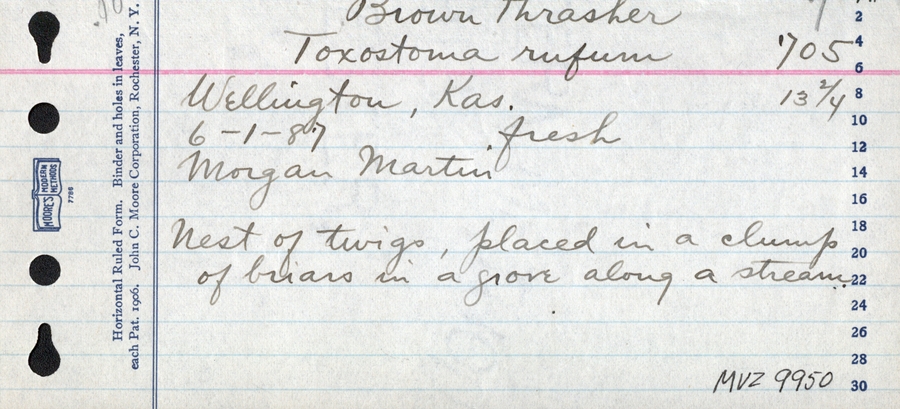 Brown Thrasher
Toxostoma rufum 705
Wellington, Kas. 13 2/4
6-1-87 fresh
Morgan Martin
Nest of twigs, placed in a clump
of briars in a grove along a stream.
MVZ 9950
2
4
6
8
10
12
14
16
18
20
22
24
26
28
30
Horizontal Ruled Form. Binder and holes in leaves,
each Pat. 1906. John C. Moore Corporation, Rochester, N. Y.
MOORE'S MODERN METHODS
7786